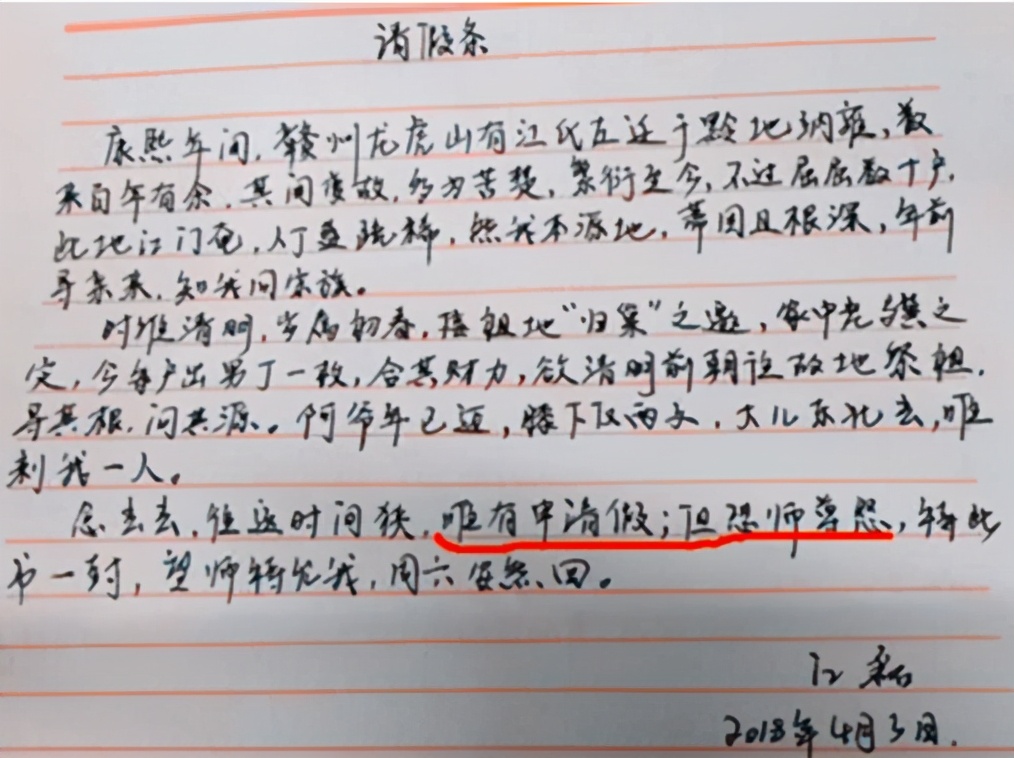 请假条
康熙年间，赣州龙虎山有江氏左迁于黔地纳雍，数
来百年有余，其间变故，多为苦楚，繁衍至今，不过屈屈数十户，
此地江门奄，人丁益疏稀，然我本源地，蒂固且根深，年前
寻亲来，知我同宗族。
时维清明，岁属初春，陪祖地“归巢”之邀，家中老之
定，今每户出男丁一枚，合其财力，欲清明前朝往故地祭祖，
寻其根，问其源。阿爷年已迈，膝下仅两文，大儿东北去，唯
剩我一人。
念去去，往返时间狭，唯有申请假；但恐师尊怨，特此
书一封，望师特允我，周六安然回。
江磊
2018年4月3日.